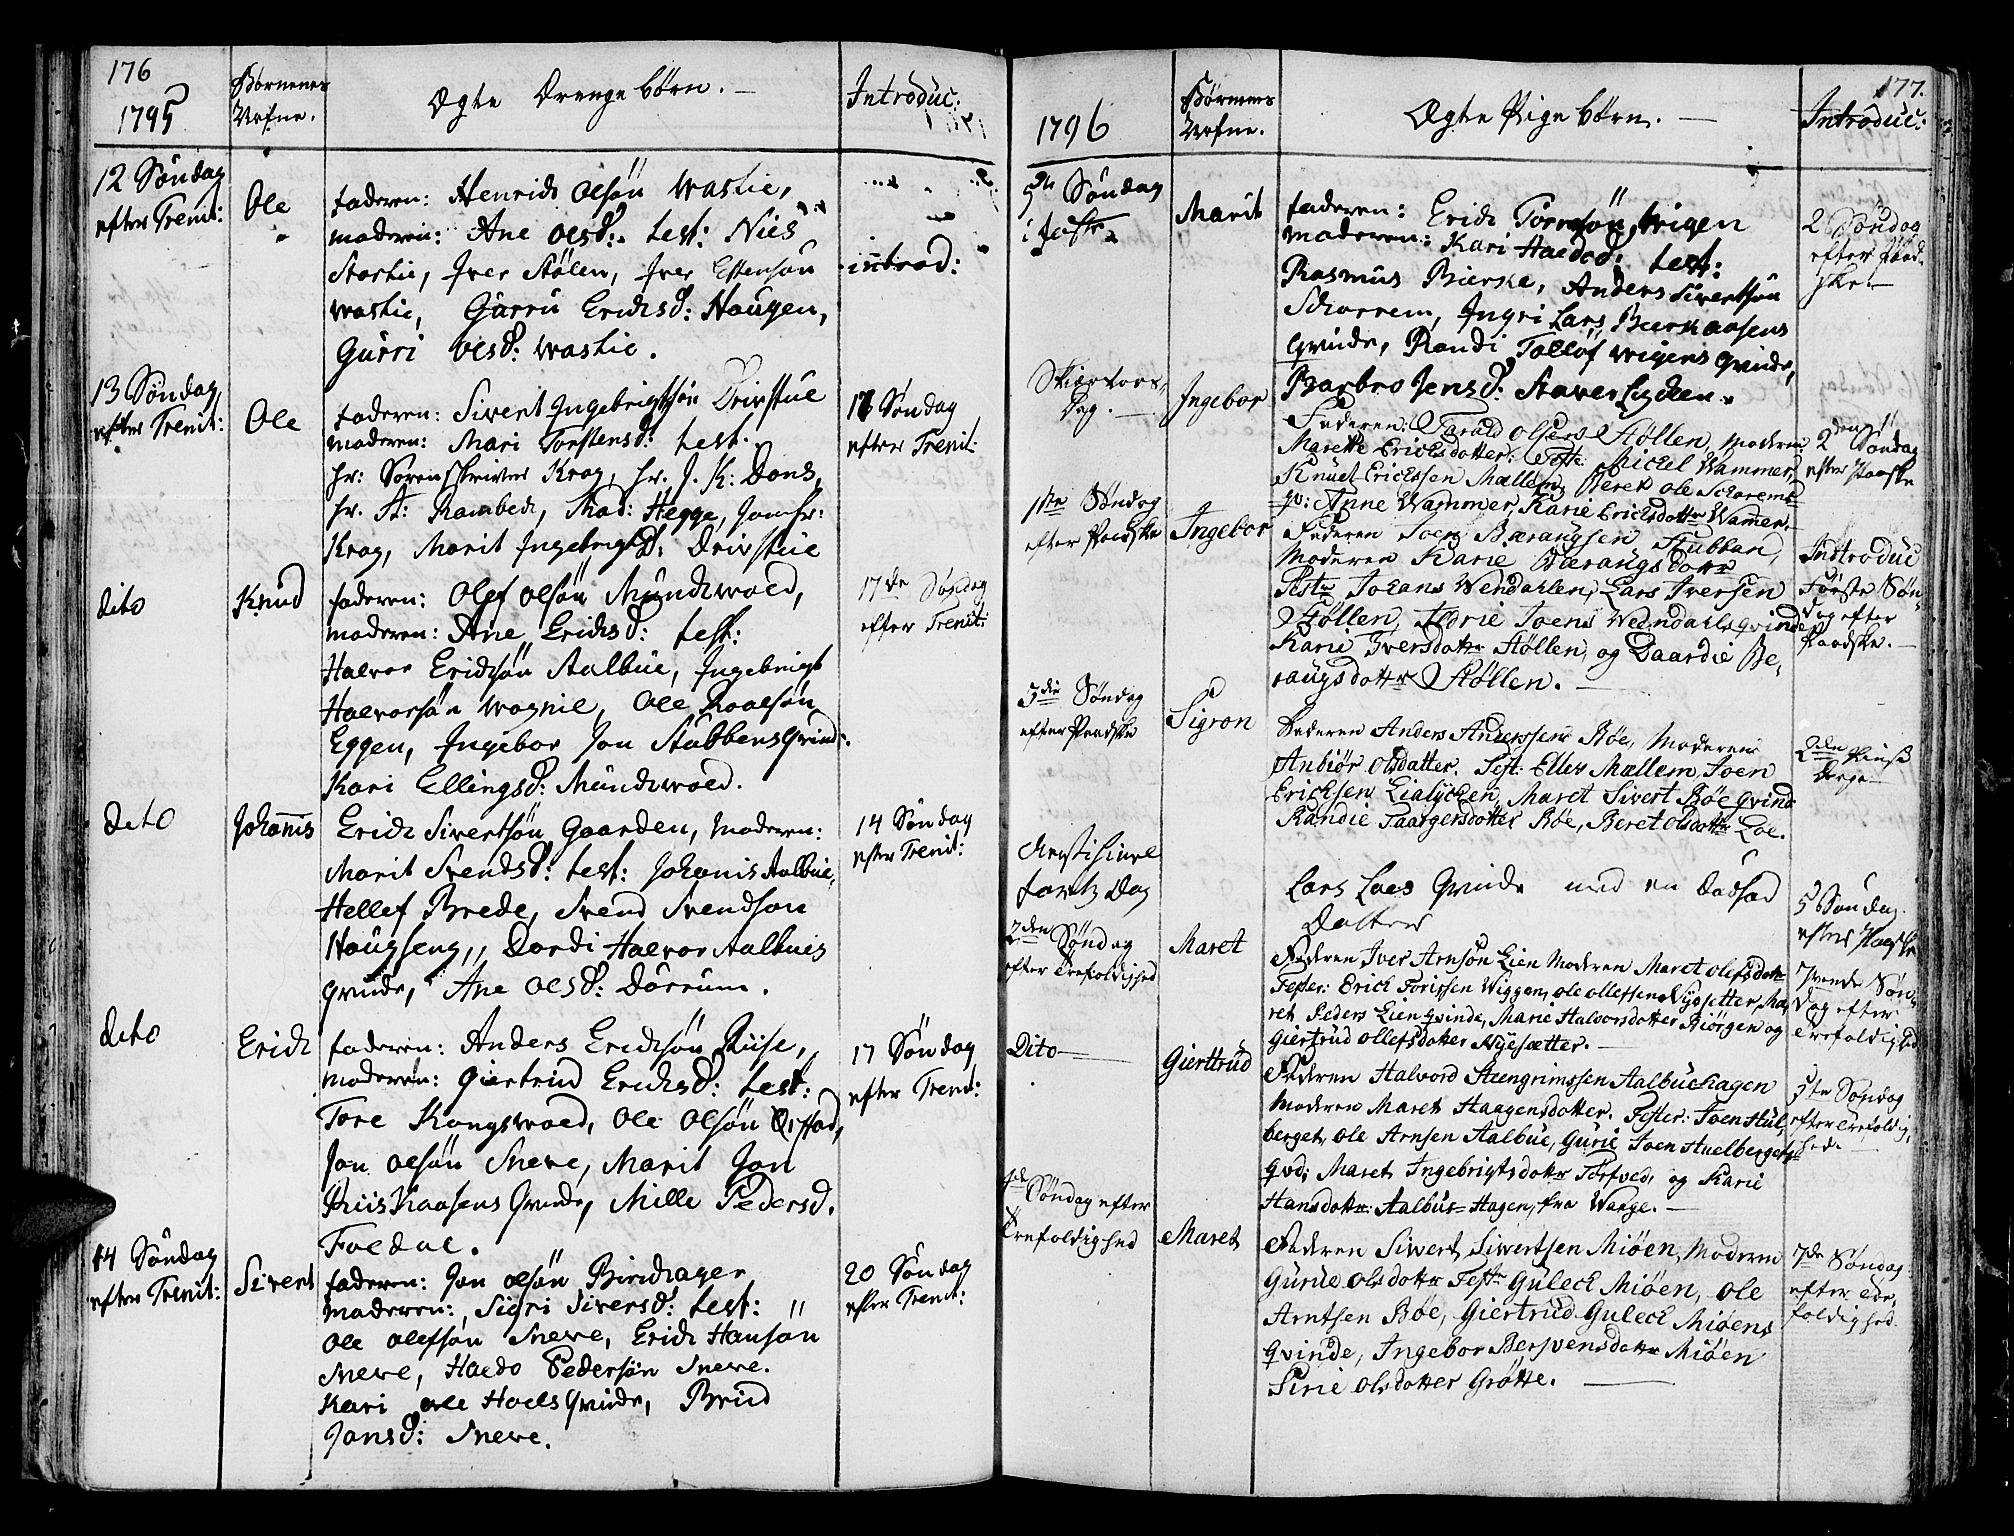 176
1795
Børnenes
Nafne.
Ægte Drengebørn. —
Introduc:
12 Søndag
efter Trenit:
Ole
faderen: Henrich Olsøn Wastie,
moderen: Ane Olsd: test: Niels
Stortie, Iver Stølen, Iver Estensøn
Wastie, Gurru Erichsd: Haugen,
Gurri Olsd: Wastie.
introd:
13 Søndag
efter Trenit:
Ole
faderen: Sivert Ingebrigtsøn Drivstue
moderen: Mari Torstensd: test:
hr: Sorenskriver Krog, hr. J. K: Dons,
hr. A: Rambech, Mad: Hegge, Jomfr:
Krog, Marit Ingebrigtsd: Drivstue
17 Søndag
efter Trenit:
dito
Knud
faderen: Olef Olsøn Mundswold,
moderen: Ane Erichsd: test:
Halvor Erichsøn Aalbue, Ingebrigt
Halvorsøn Wognil, Ole Roalsøn
Eggen, Ingebor Jon Stubbens Qvinde:
Kari Ellingsd: Mundswold.
17de Søndag
efter Trenit:
dito
Johannis
Erich Sivertsøn Gaarden, moderen:
Marit Svendsd: test: Johanis Aalbue,
Hellef Brede, Svend Svendsøn
Haugseng, Dordi Halvor Aalbues
Qvinde, Ane Olsd: Dørrum.
14 Søndag
efter Trenit:
dito
Erich
faderen: Anders Erichsøn Riise,
moderen: Giertrud Erichsd: test:
Tore Kongswold, Ole Olsøn
Jon Olsøn Snewe, Marit Jon
Qvinde, Mille Pedersd.
Foedal.
17 Søndag
efter Trenit:
14 Søndag
efter Trenit:
Sivert
faderen: Jon Olsøn Birchager
moderen: Sigri Siversd: test:
Ole Olefsøn Snewe, Erich Hansøn
Snewe, Haldo Pedersøn Snewe.
Kari Ole Hoels Qvinde, Brud
Jonsd: Snewe.
20 Søndag
efter Trenit:
177.
1796
Børnenes
Nafne.
Ægte Pigebørn. —
Introduc:
5te Søndag
i Faste.
Marit
faderen: Erich Torresøn Wigen
moderen: Kari Haldosd: test:
Rasmus Bierke, Anders Sivertsøn
Schorrem, Ingri Lars Bierkaasens
Qvinde, Randi Tollof Wigens Qvinde,
Barbro Jensd: Staverlychen.
2 Søndag
efter Paad-
ske. —
Skiertors-
Dag. —
Ingebor
Faderen: Harald Olsers Støllen, Moderen
Marette Erichsdotter: Teste: Michel Wammer,
Knud Ericksen Mællem, Beret Ole Schorems
qv: Anne Wammer, Karie Ericksdotter Wamer. —
den
2 Søndag
efter Paaske
1ste Søndag
efter Paadske
Ingebor
Faderen Joen Bæraugsen Stubban,
Moderen Karie Bæraugsdotter
Testr Johans Wendahlen, Lars Iversen
Støllen, Aldrie Joens Wendahls qvinde
Karie Iversdotter Støllen, og Daardie Be-
raugsdotter Støllen. —
Introduc
Første Søn-
dag efter
Paadske. —
5die Søndag
efter Paadske
Sigron
Faderen Anders Anderssen Bøe, Moderen
Anbiør Olsdatter. Test: Elles Mællem, Joen
Erichsen Lialychen, Maret Sivert Bøe qvinde
Randie Taargersdotter Bøe, Beret Olsdotter Loe.
2den Pinse
Dag
Christi himel
farts Dag
Lars Loes Qvinde med en dødfød
Datter
5 Søndag
efter Paaske
2den Søndag
efter Trefoldighed
Maret
Faderen Iver Arnsøn Lien Moderen Maret Olefsdotter
Tester: Erick Torissen Wiggen, Ole Ollefsen Nygsetter, Ma-
ret Peders Lien qvinde, Marie Halvorsdotter Biørgen og
Giertrud Ollefsdotter Nyesætter. —
7vende Søn-
dag efter
Trefoldighed
Dito —
Gierttrud
Faderen Halvord Steengrimssen Aalbuehagen
Moderen Maret Haagensdotter. Tester: Joen Hul-
berget, Ole Arnsen Aalbue, Gurie Joen Huelbergets
qvd: Maret Ingebrigtsdotter Torfved, og Karie
Hansdotter Aalbue-Hagen, fra Wange. —
5te Søndag
efter Trefoldig-
hed. —
4de Søndag efter
Trefoldighed
Maret
Faderen Siwert Siwertsen Miøen, Moderen
Gurue Olsdotter Testr Guleck Miøen, Ole
Arntsen Bøe, Giertrud Guleck Miøens
qvinde, Ingebor Berswensdotter Miøen
Sirie Olsdotter Grøtte. —
7de Søndag
efter Tre-
foldighed